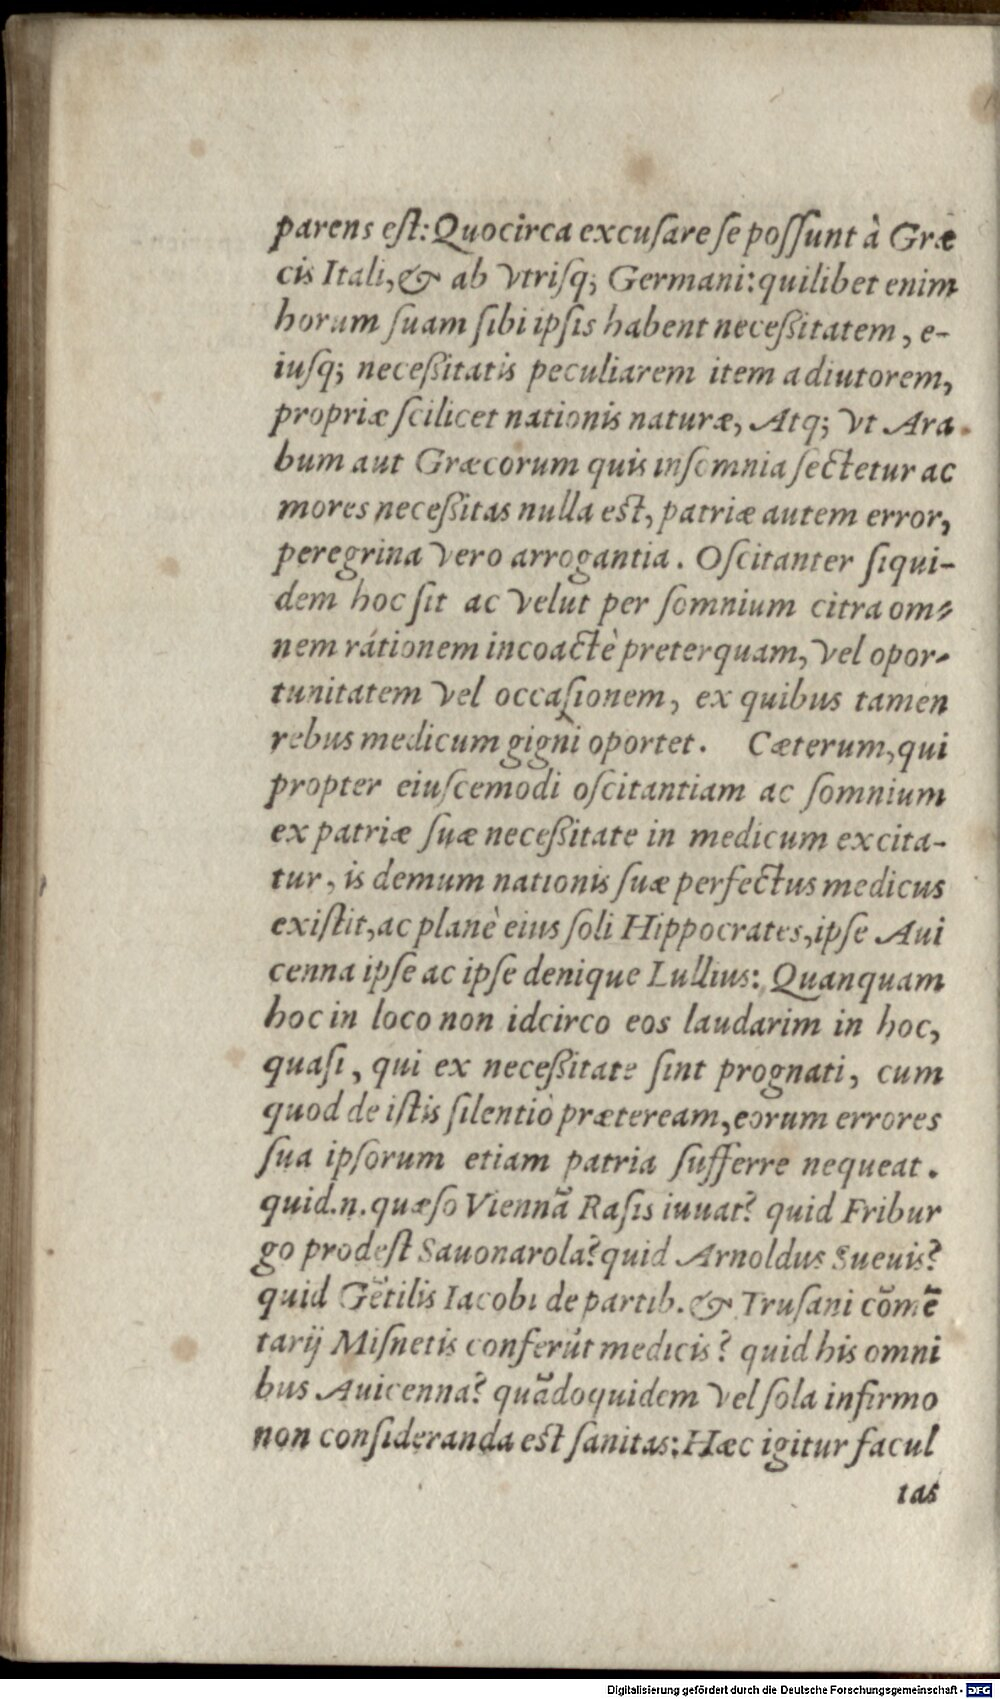 parens eſt: Quocirca excuſare ſe poſſunt à Græ
cis Itali, & ab vtriſq; Germani: quilibet enim
horum ſuam ſibi ipſis habent neceßitatem, e-
iuſq; neceßitatis peculiarem item adiutorem,
propriæ ſcilicet nationis naturæ, Atq; vt Ara
bum aut Græcorum quis inſomnia ſectetur ac
mores neceßitas nulla eſt, patriæ autem error,
peregrina vero arrogantia. Oſcitanter ſiqui-
dem hoc ſit ac velut per ſomnium citra om-
nem rátionem incoactè preterquam, vel opor-
tunitatem vel occaſionem, ex quibus tamen
rebus medicum gigni oportet. Cæterum, qui
propter eiuſcemodi oſcitantiam ac ſomnium
ex patriæ ſuæ neceßitate in medicum excita-
tur, is demum nationis ſuæ perfectus medicus
exiſtit, ac planè eius ſoli Hippocrates, ipſe Aui
cenna ipſe ac ipſe denique Lullius: Quanquam
hoc in loco non idcirco eos laudarim in hoc,
quaſi, qui ex neceßitate ſint prognati, cum
quod de iſtis ſilentio præteream, eorum errores
ſua ipſorum etiam patria ſufferre nequeat.
quid.n. quæſo Viennā Raſis iuuat? quid Fribur
go prodeſt Sauonarola? quid Arnoldus Sueuis?
quid Gētilis Iacobi de partib. & Truſani cōmē
tarij Miſnetis conferūt medicis? quid his omni
bus Auicenna? quādoquidem vel ſola infirmo
non conſideranda eſt ſanitas: Hæc igitur facul
tas
Digitalisierung gefördert durch die Deutsche Forschungsgemeinschaft - DFG